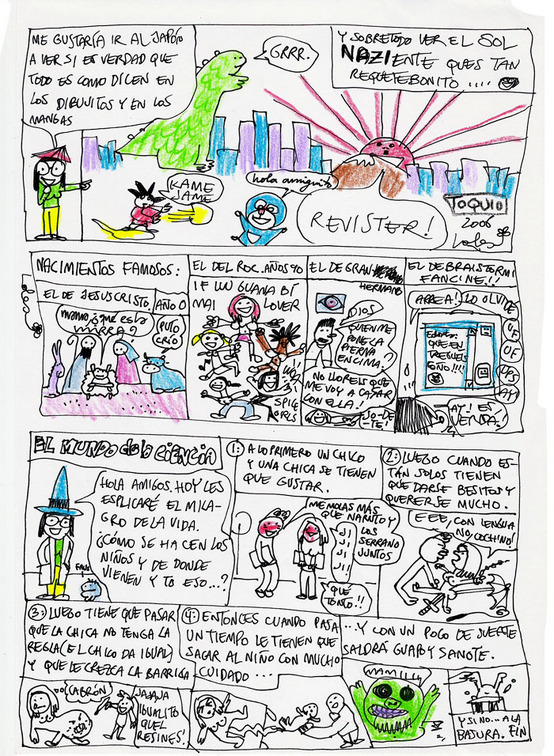 ME GUSTARÍA IR AL JAPÓN
A VER SI ES VERDAD QUE
TODO ES COMO DICEN EN
LOS DIBUJITOS Y EN LOS
MANGAS
GRRR.
Y SOBRETODO VER EL SOL
NAZIENTE QUES TAN
REQUETEBONITO ....
KAME
JAME
HOLA AMIGUITO
REVISTER!
TOQUIO
2006
NACIMIENTOS FAMOSOS:
EL DE JESUCRISTO, AÑO 0
MAMA, ¿QUÉ ES LA
MIRRA?
PUTO
CRÍO
EL DEL ROC. AÑOS 90
IF LLU GUANA BI
MAI LOVER
SPICE
GIRLS
EL DE GRAN
HERMANO
¡DIOS!
QUIEN ME
PONE LA
PIERNA
ENCIMA!
NO LLOREIS QUE
ME VOY A CASAR
CON ELLA!
¡JO-DE-
TE!
EL DE BRAISTORMIN
FANCINE!!
QUE EN
TRES
AY! EL
EL MUNDO de la CIENCIA
HOLA AMIGOS. HOY LES
ESPLICARÉ EL MILA-
GRO DE LA VIDA.
¿CÓMO SE HACEN LOS
NIÑOS Y DE DONDE
VIENEN Y TO ESO...?
1: A LO PRIMERO UN CHICO
Y UNA CHICA SE TIENEN
QUE GUSTAR.
ME MOLAS MÁS
QUE NARUTO Y
LOS
SERRANO
JUNTOS
JI
JI
JI
QUÉ
TONTO!!
2: LUEGO CUANDO ES-
TÁN SOLOS TIENEN
QUE DARSE BESITOS Y
QUERERSE MUCHO.
EEE, CON LENGUA
NO, COCHINO!
3: LUEGO TIENE QUE PASAR
QUE LA CHICA NO TENGA LA
REGLA (EL CHICO DA IGUAL)
Y QUE LE CREZCA LA BARRIGA
CABRÓN
JAJAJA
IGUALITO
QUEL
RESINES!
4: ENTONCES CUANDO PASA
UN TIEMPO LE TIENEN QUE
SACAR AL NIÑO CON MUCHO
CUIDADO ...
...Y CON UN POCO DE SUERTE
SALDRÁ GUAPO Y SANOTE.
MAMIII
Y SI NO... A LA
BASURA. FIN